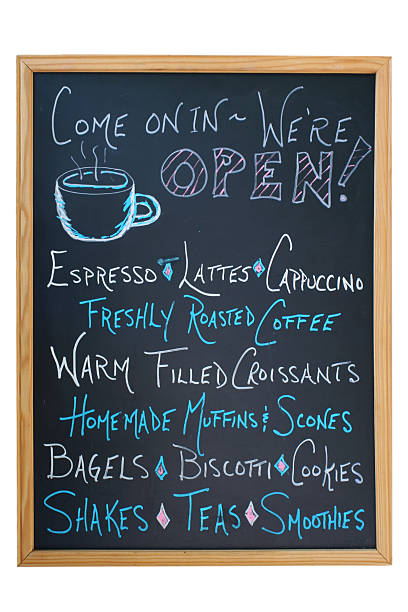 COME ON IN ~ WE'RE
OPEN!
ESPRESSO ♦ LATTES ♦ CAPPUCCINO
FRESHLY ROASTED COFFEE
WARM FILLED CROISSANTS
HOMEMADE MUFFINS & SCONES
BAGELS ♦ BISCOTTI ♦ COOKIES
SHAKES ♦ TEAS ♦ SMOOTHIES